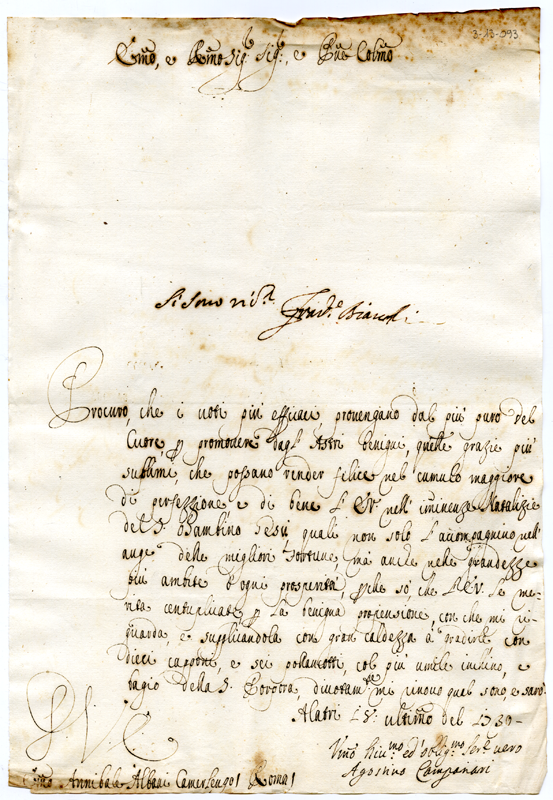 3-13-093
Emo, e Rmo Sigr. Sigr., e Pne Colmo
Si sono
Procuro, che i voti più efficaci provengano dal più puro del
Cuore, p promovere dagl' Astri benigni, quelle grazie più
sublimi, che possano render felice nel cumulo maggiore
di perfezzione e di bene l' nell' iminenze Natalizie
del S. Bambino Gesù quali non solo l'accompagnino nell'
auge delle migliori fortune, ma anche nelle grandezze
più ambite d'ogni prosperità, so' che l'E.V. se me-
rita centuplicate p la benigna propensione, con che mi ri-
guarda, e supplicandola con gran caldezza à gradirle con
dieci capponi, e sei pollancotti, col più umile inchino, e
bagio della S. Porpora, mi rinovo qual sono, e sarò
Alatri ultimo del 1739-
Vmo ed' obligmo Serr. vero
Agostino Campanari
Emo Annibale Albani Camerlengo Roma